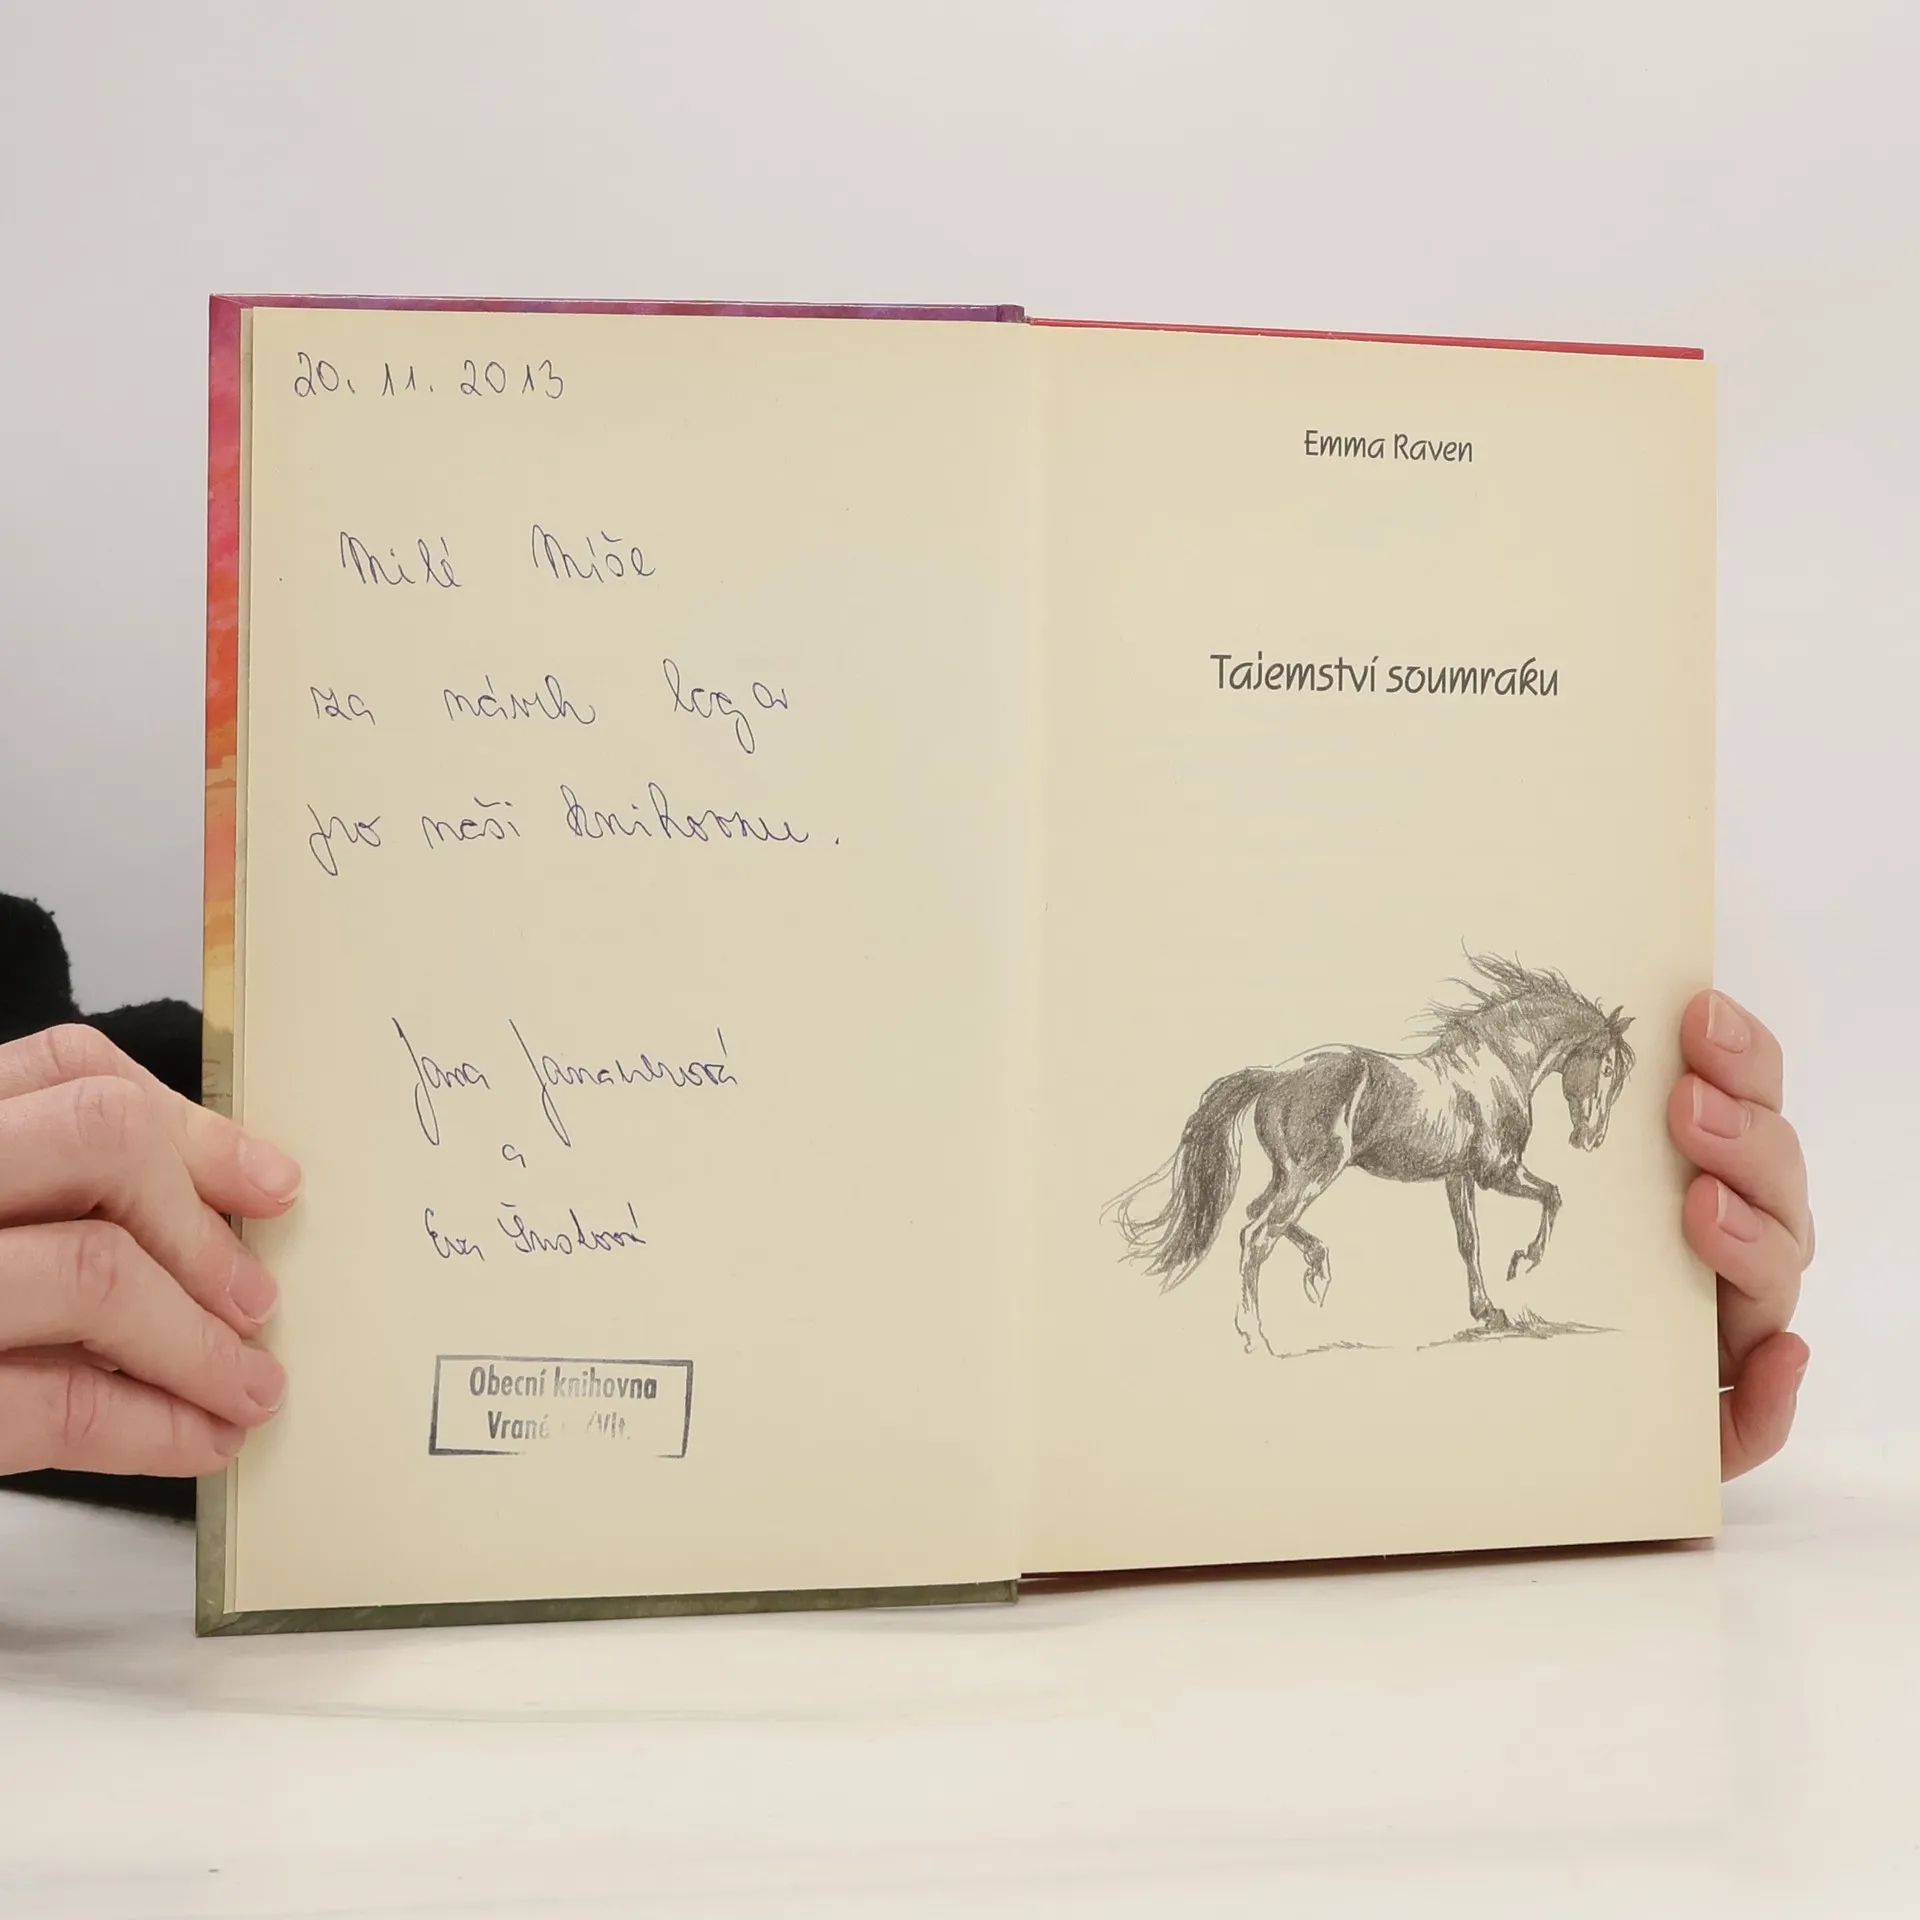 20. 11. 2013
Milé Míše
za návrh loga
pro naši knihovnu.
Jana
a
Eva
Obecní knihovna
Vrané /Vlt.
Emma Raven
Tajemství soumraku